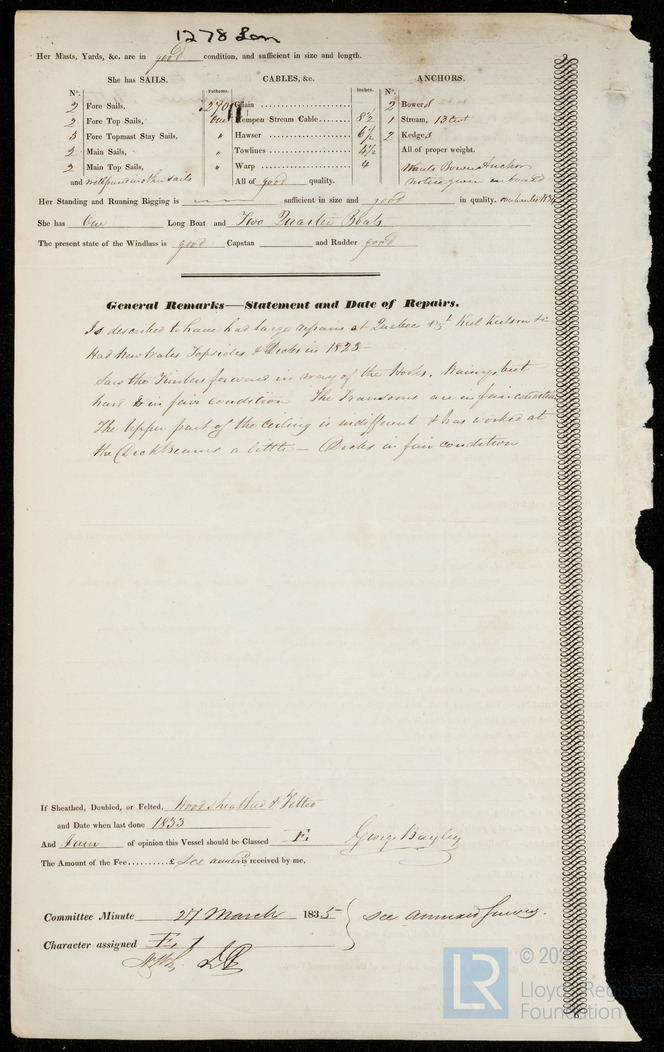 1278 Lon
Her Masts, Yards, &c. are in good condition, and sufficient in size and length.
She has SAILS. CABLES, &c. ANCHORS.
N°. Fathoms. Inches. N°.
2 Fore Sails, 270 Chain 2 Bowers
2 Fore Top Sails, One Hempen Stream Cable 8½ 1 Stream,
3 Fore Topmast Stay Sails, " Hawser 6½ 2 Kedges
2 Main Sails, " Towlines 4½ All of proper weight.
2 Main Top Sails, " Warp 4 Wants Bower Anchor
and well found in other sails All of good quality. notice given
Her Standing and Running Rigging is sufficient in size and good in quality.
She has One Long Boat and Two Quarter Boats
The present state of the Windlass is good Capstan and Rudder good
General Remarks—Statement and Date of Repairs.
Is described to have had large repairs at Quebec Keel Keelson &c
Had New Wales Topsides & Decks in 1823
Saw the Timbers forward in way of the Hooks. Wainy, but
hard & in fair condition The Transoms are in fair condition
The Upper part of the Ceiling is indifferent & has worked at
the Deck Beams a little — Decks in fair condition
If Sheathed, Doubled, or Felted, Wood sheathed & Felted
and Date when last done 1833
And I am of opinion this Vessel should be Classed E George Bayley
The Amount of the Fee..........£ See received by me,
Committee Minute 27 March 1835 See annexed Survey.
Character assigned E 1
LR
© 20
Lloyd's Register
Foundation